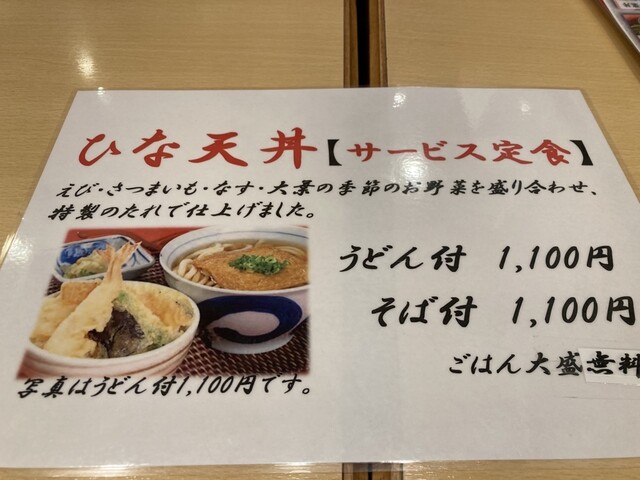 ひな天丼【サービス定食】
えび・さつまいも・なす・大葉の季節のお野菜を盛り合わせ、
特製のたれで仕上げました。
うどん付 1,100円
そば付 1,100円
ごはん大盛無料
写真はうどん付1,100円です。